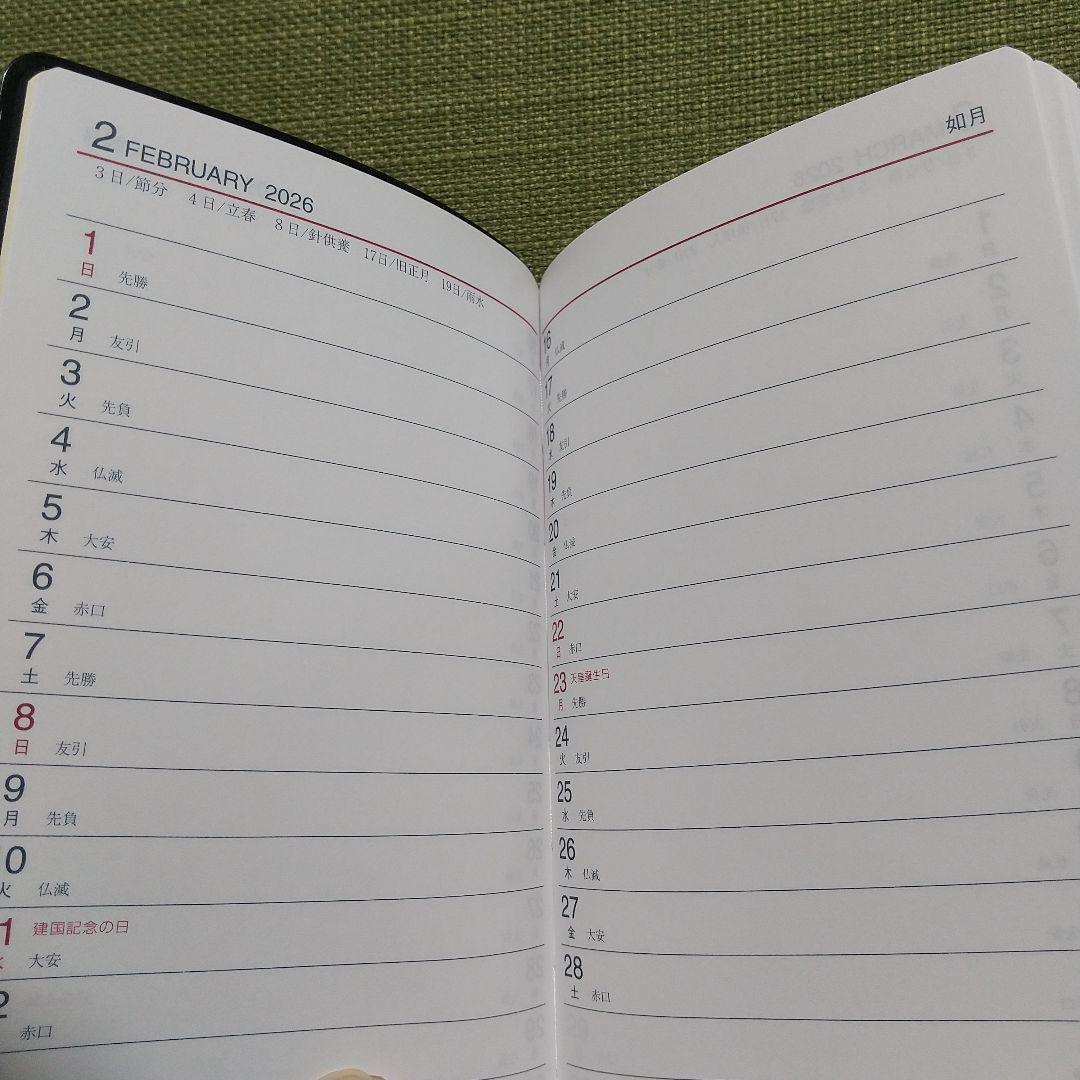 2 FEBRUARY 2026
3日/節分 4日/立春 8日/針供養 17日/旧正月 19日/雨水
1
日 先勝
2
月 友引
3
火 先負
4
水 仏滅
5
木 大安
6
金 赤口
7
土 先勝
8
日 友引
9
月 先負
0
火 仏滅
1 建国記念の日
水 大安
2
赤口
如月
16
月 仏滅
17
火 先勝
18
水 友引
19
木 先負
20
金 仏滅
21
土 大安
22
日 赤口
23 天皇誕生日
月 先勝
24
火 友引
25
水 先負
26
木 仏滅
27
金 大安
28
土 赤口